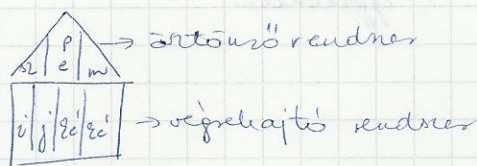 sz | p e | m → ösztönző rendszer
i | j | → végrehajtó rendszer